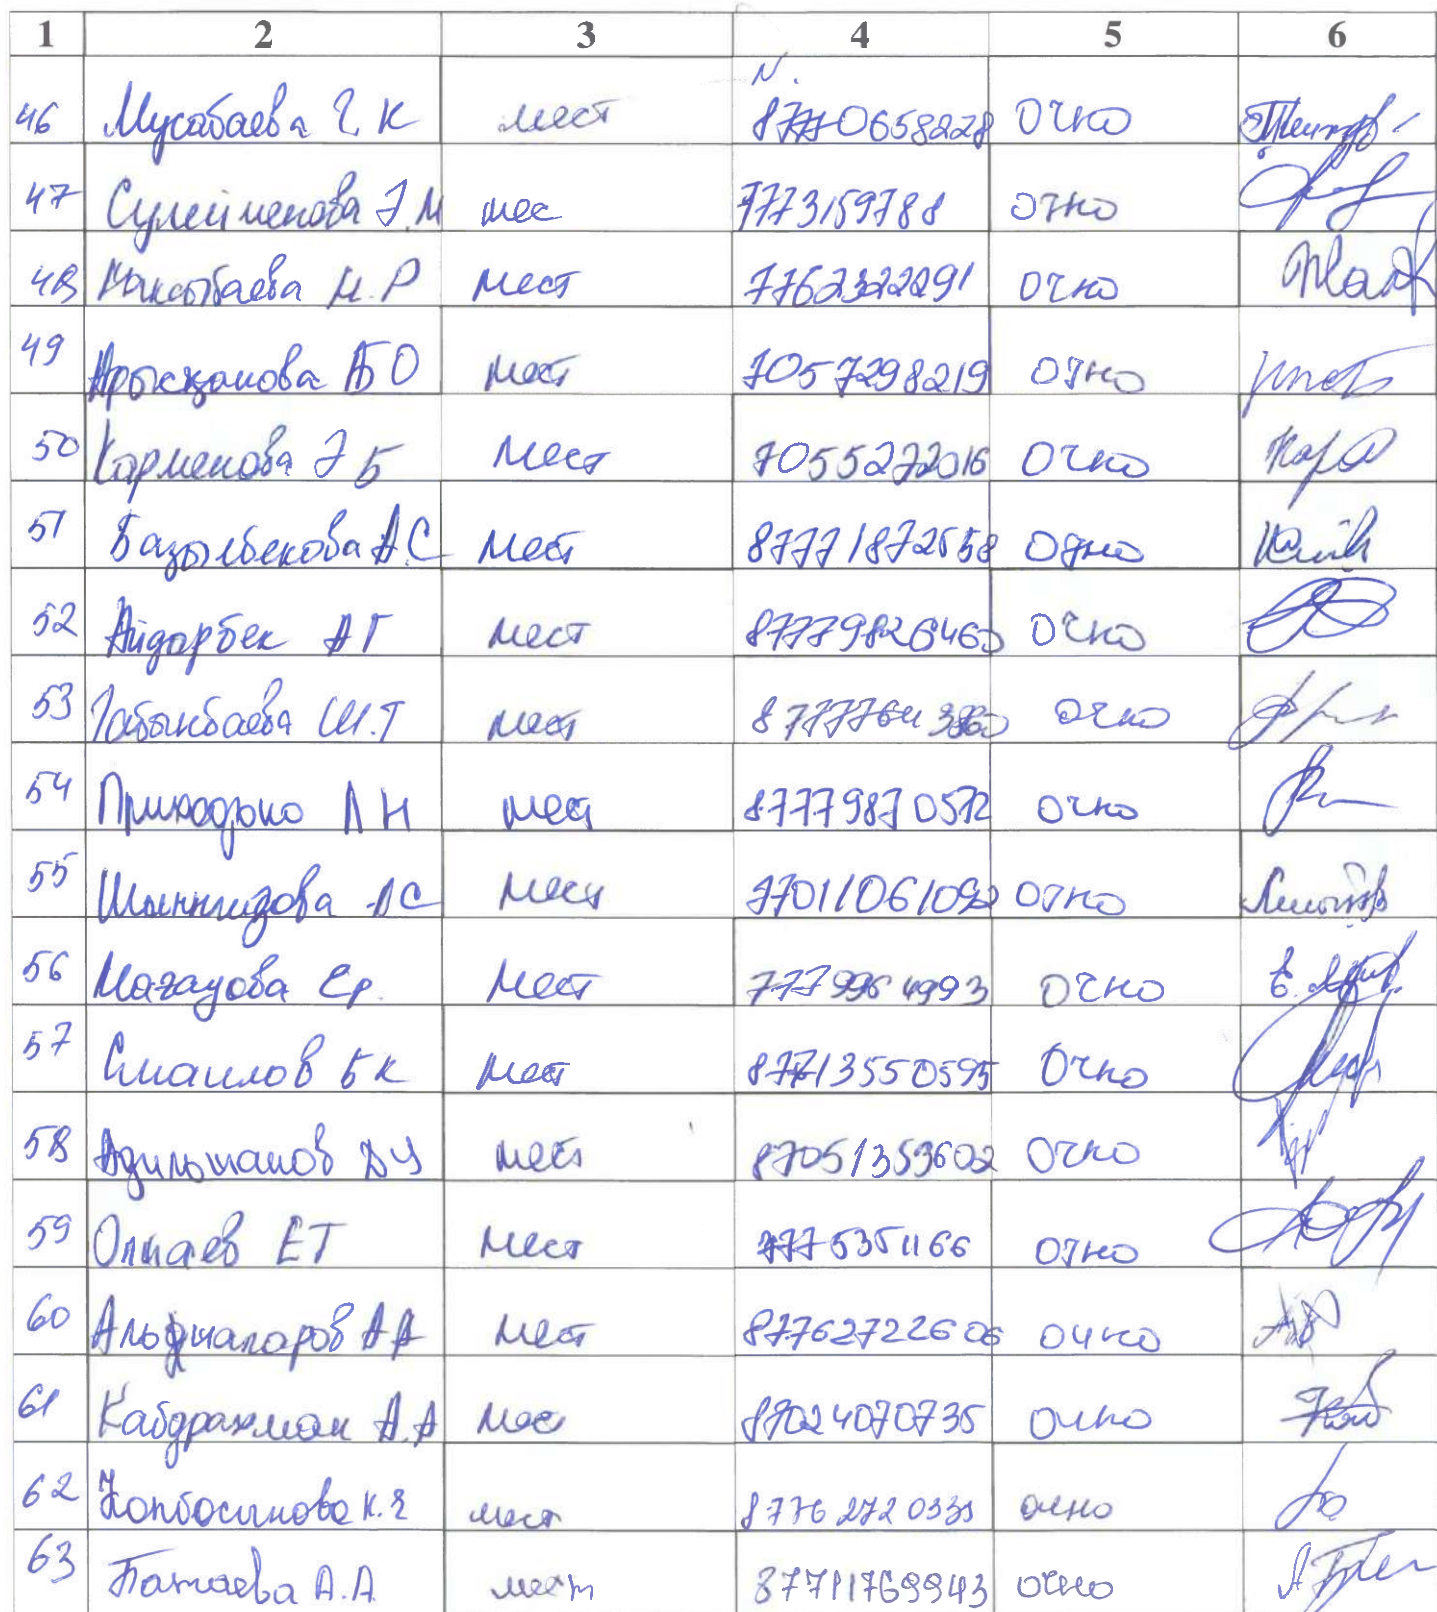 1 2 3 4 5 6
N.
46 Мусабаева Г К мест 87770658228 очно
47 Сулейменова Э.М мес 7773159788 очно
48 Максытбаева М.Р мест 77623222291 очно
49 Арысханова АБО мест 7057298219 очно
50 Карменова Э Б мест 7055272016 очно
51 Базылбекова А.С мест 87771872558 очно
52 Айдарбек АГ мест 87779826460 очно
53 Табынбаева Ш.Т мест очно
54 Приходько Л Н мест 87779870572 очно
55 Шынгизова АС мест 77011061092 очно
56 Магауова Ер. мест 7779964993 очно
57 Смаилов Б К мест 87713550595 очно
58 Адильжанов ДУ мест 87051353602 очно
59 Олжаев ЕТ мест 7775351166 очно
60 Альджапаров АА мест 87762722606 очно
61 Кабдрахман А.А мес 87024070735 очно
62 Копбосынова К.Е мест 8776 272 0331 очно
63 Батаева А.А. мест 87711769943 очно